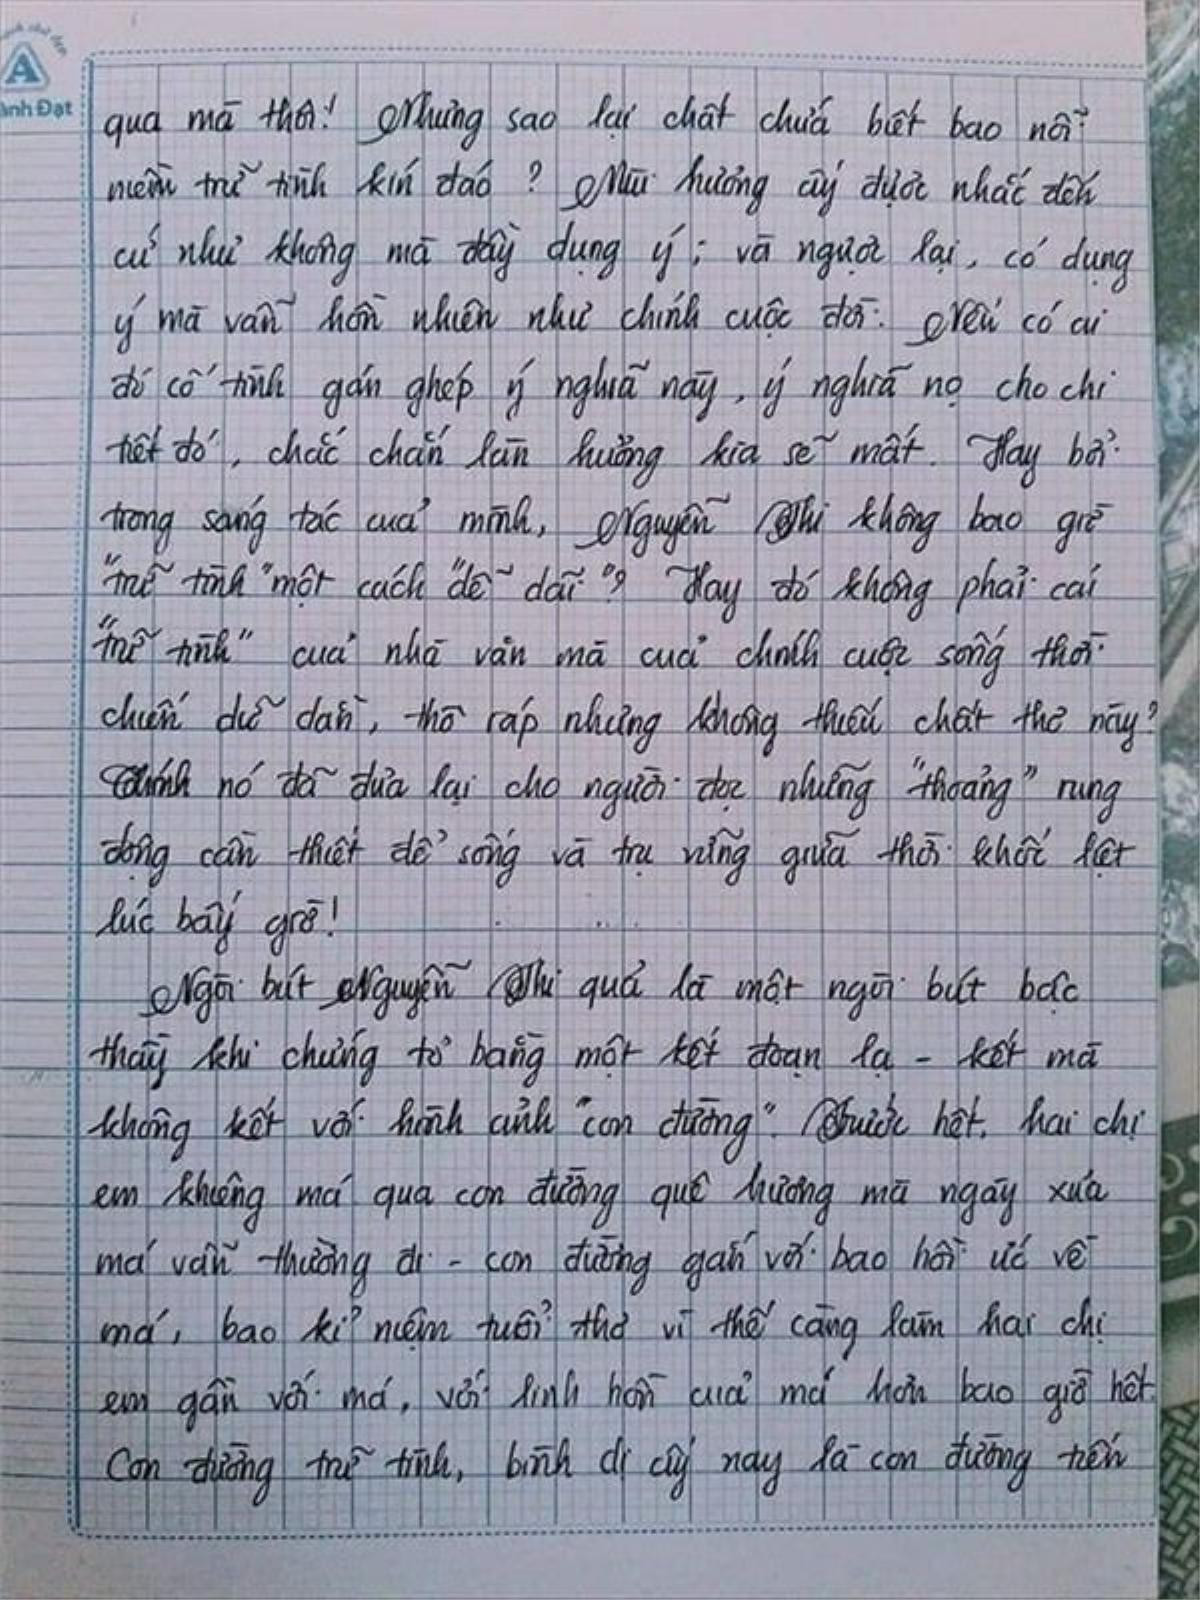 ành Đạt
qua mà thôi! Nhưng sao lại chất chứa biết bao nỗi
niềm trữ tình kín đáo? Mùi hương ấy được nhắc đến
cứ như không mà đầy dụng ý; và ngược lại, có dụng
ý mà vẫn hồn nhiên như chính cuộc đời. Nếu có ai
đó cố tình gán ghép ý nghĩa này, ý nghĩa nọ cho chi
tiết đó, chắc chắn làn hương kia sẽ mất. Hay bởi
trong sáng tác của mình, Nguyễn Thi không bao giờ
"trữ tình" một cách "dễ dãi"? Hay đó không phải cái
"trữ tình" của nhà văn mà của chính cuộc sống thời
chiến dữ dằn, thô ráp nhưng không thiếu chất thơ này?
Chính nó đã đưa lại cho người đọc những "thoảng" rung
động cần thiết để sống và trụ vững giữa thời khốc liệt
lúc bấy giờ!
Ngòi bút Nguyễn Thi quả là một ngòi bút bậc
thầy khi chứng tỏ bằng một kết đoạn lạ - kết mà
không kết với hình ảnh "con đường". Trước hết, hai chị
em khiêng má qua con đường quê hương mà ngày xưa
má vẫn thường đi - con đường gắn với bao hồi ức về
má, bao kỉ niệm tuổi thơ vì thế càng làm hai chị
em gần với má, với linh hồn của má hơn bao giờ hết.
Con đường trữ tình, bình dị ấy nay là con đường tiến